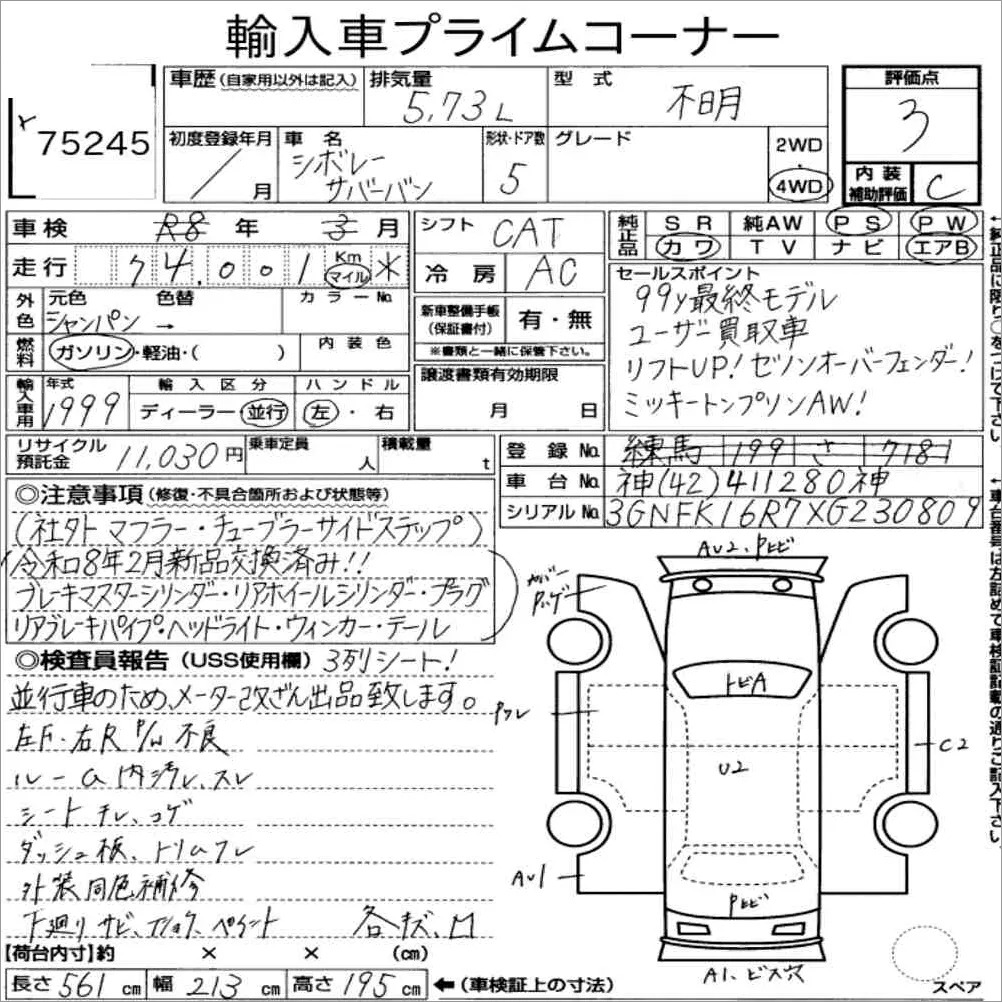 輸入車プライムコーナー
75245
車歴（自家用以外は記入）
排気量
5.73L
型式
不明
評価点
3
初度登録年月
/ 月
車名
シボレー
サバーバン
形状・ドア数
5
グレード
2WD
4WD
内装
補助評価
C
車検 R8 年 3 月
シフト
CAT
純正品
SR
純AW
PS
PW
カワ
TV
ナビ
エアB
走行 74,001 Km
マイル
*
冷房
AC
外色
元色
シャンパン
色替
→
カラーNo.
新車整備手帳
（保証書付）
有・無
※書類と一緒に保管下さい。
燃料
ガソリン・軽油・（ ）
内装色
セールスポイント
99y最終モデル
ユーザー買取車
リフトUP！ゼノンオーバーフェンダー！
ミッキートンプソンAW！
輸入車用
年式
1999
輸入区分
ディーラー・並行
ハンドル
左・右
譲渡書類有効期限
月 日
リサイクル
預託金
11,030円
乗車定員
人
積載量
t
登録No.
練馬 199 さ 7181
車台No.
神(42)411280神
シリアルNo.
3GNFK16R7XG230809
◎注意事項（修復・不具合箇所および状態等）
（社外マフラー・チューブラーサイドステップ）
令和8年2月新品交換済み!!
ブレーキマスターシリンダー・リアホイールシリンダー・プラグ
リアブレーキパイプ・ヘッドライト・ウィンカー・テール
◎検査員報告（USS使用欄）3列シート！
並行車のため、メーター改ざん出品致します。
左F・右R P/W 不良
ルーム内汚レ、スレ
シート チレ、コゲ
ダッシュ板、トリムワレ
外装同色補修
下廻り サビ、ペイント
各キズ、凹
AU2、Pヒビ
カバー
トビA
U2
C2
AU1
Pヒビ
A1、ビス穴
スペア
【荷台内寸】約 × × (cm)
長さ 561 cm 幅 213 cm 高さ 195 cm ←（車検証上の寸法）